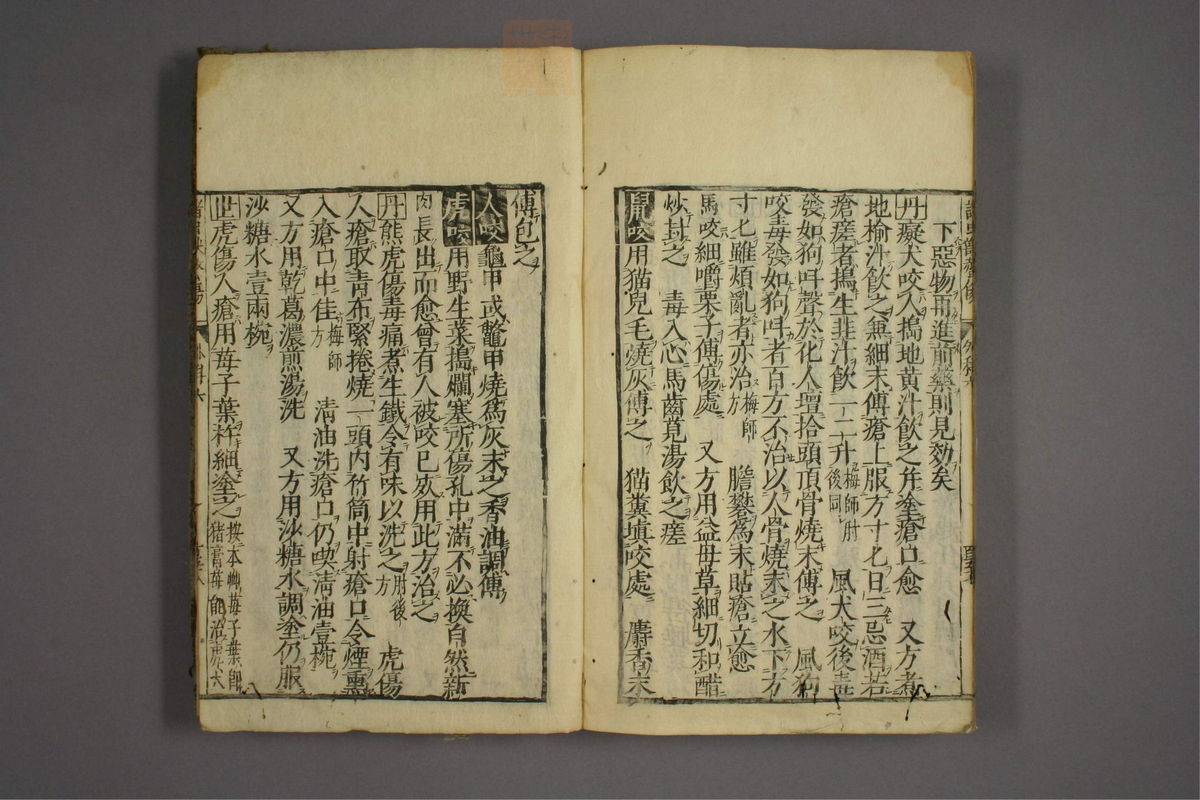 下惡物再進前藥則見効矣
丹癡犬咬人搗地黃汁飲之并塗瘡口愈　又方煮
地榆汁飲之無細末傅瘡上服方寸匕日三忌酒若
瘡瘥者搗生韭汁飲一二升梅師肘後同　風犬咬後毒
發如狗吽聲於化人壇拾頭頂骨燒末傅之　風狗
咬毒發如狗吽者百方不治以人骨燒末之水下方
寸匕雖煩亂者亦治梅師方　膽礬為末貼瘡立愈
馬咬細嚼栗子傅傷處　又方用益母草細切和醋
炒封之　毒入心馬齒莧湯飲之瘥
鼠咬用猫兒毛燒灰傅之　猫糞填咬處　麝香末
傅包之
人咬龜甲或鼈甲燒為灰末之香油調傅
虎咬用野生菜搗爛塞所傷孔中滿不必換自然新
肉長出而愈曾有人被咬已效用此方治之
丹熊虎傷毒痛煮生鐵令有味以洗之肘後方　虎傷
人瘡取青布緊捲燒一頭內竹筒中射瘡口令煙熏
入瘡口中佳梅師方　清油洗瘡口仍喫清油壹椀
又方用乾葛濃煎湯洗　又方用沙糖水調塗仍服
沙糖水壹兩椀
世虎傷人瘡用苺子葉杵細塗之按本草苺子葉即猪膏苺能治虎犬